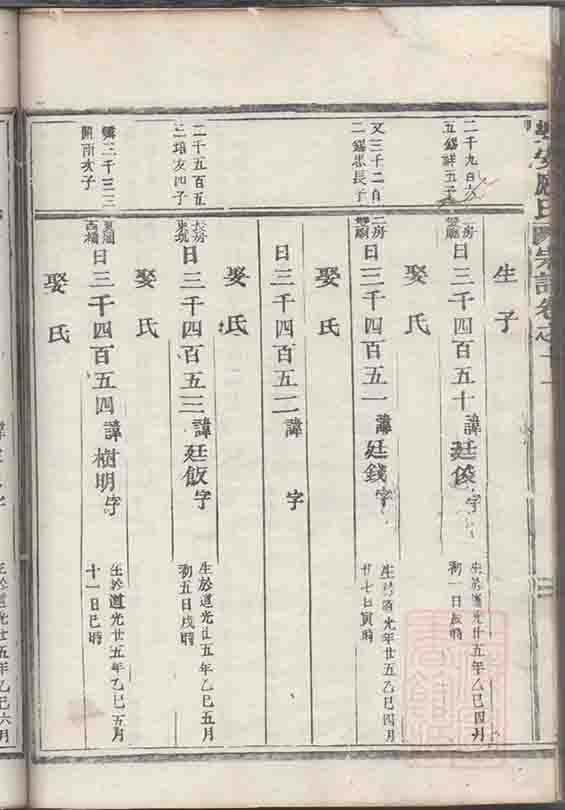 生子
二千九百六
五錫詳五子
二房
日三千四百五十諱廷俊字
生於道光廿五年乙巳四月
初一日辰時
娶氏
文三千二自
二錫思長子
二房
日三千四百五一諱廷錢字
生於道光年廿五乙巳四月
廿七日寅時
娶氏
日三千四百五二諱字
娶氏
二千五百五
二培友四子
長房
東坑
日三千四百五三諱廷飯字
生於道光廿五年乙巳五月
初五日戌時
娶氏
三千三三
開南次子
日三千四百五四諱樹明字
生於道光廿五年乙巳五月
十一日巳時
娶氏
生於道光廿五年乙巳六月